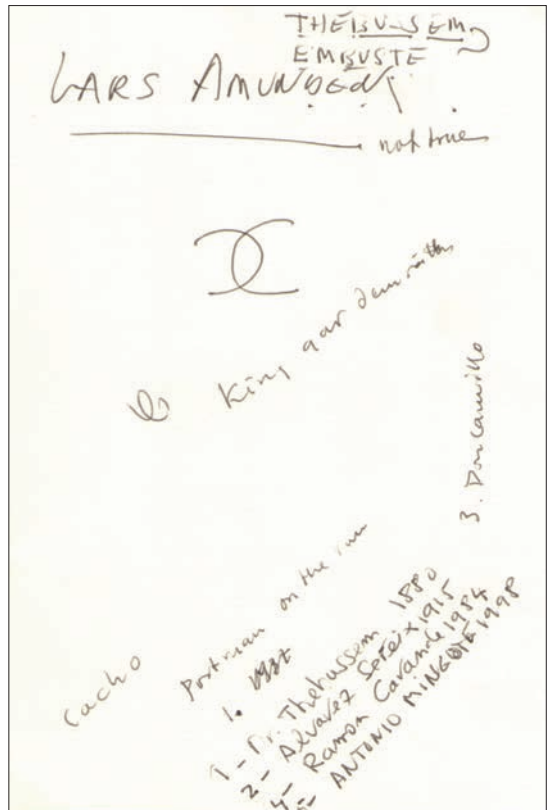 THEBUSSEM
EMBUSTE
LARS AMUNDSEN
not true
King
3. Don Camilo
Postman on the run
1.
Cacho
1 - Dr. Thebussem 1880
2 - Alvarez Sereix 1915
4 - Ramon Carande 1984
5 - ANTONIO MINGOTE 1998